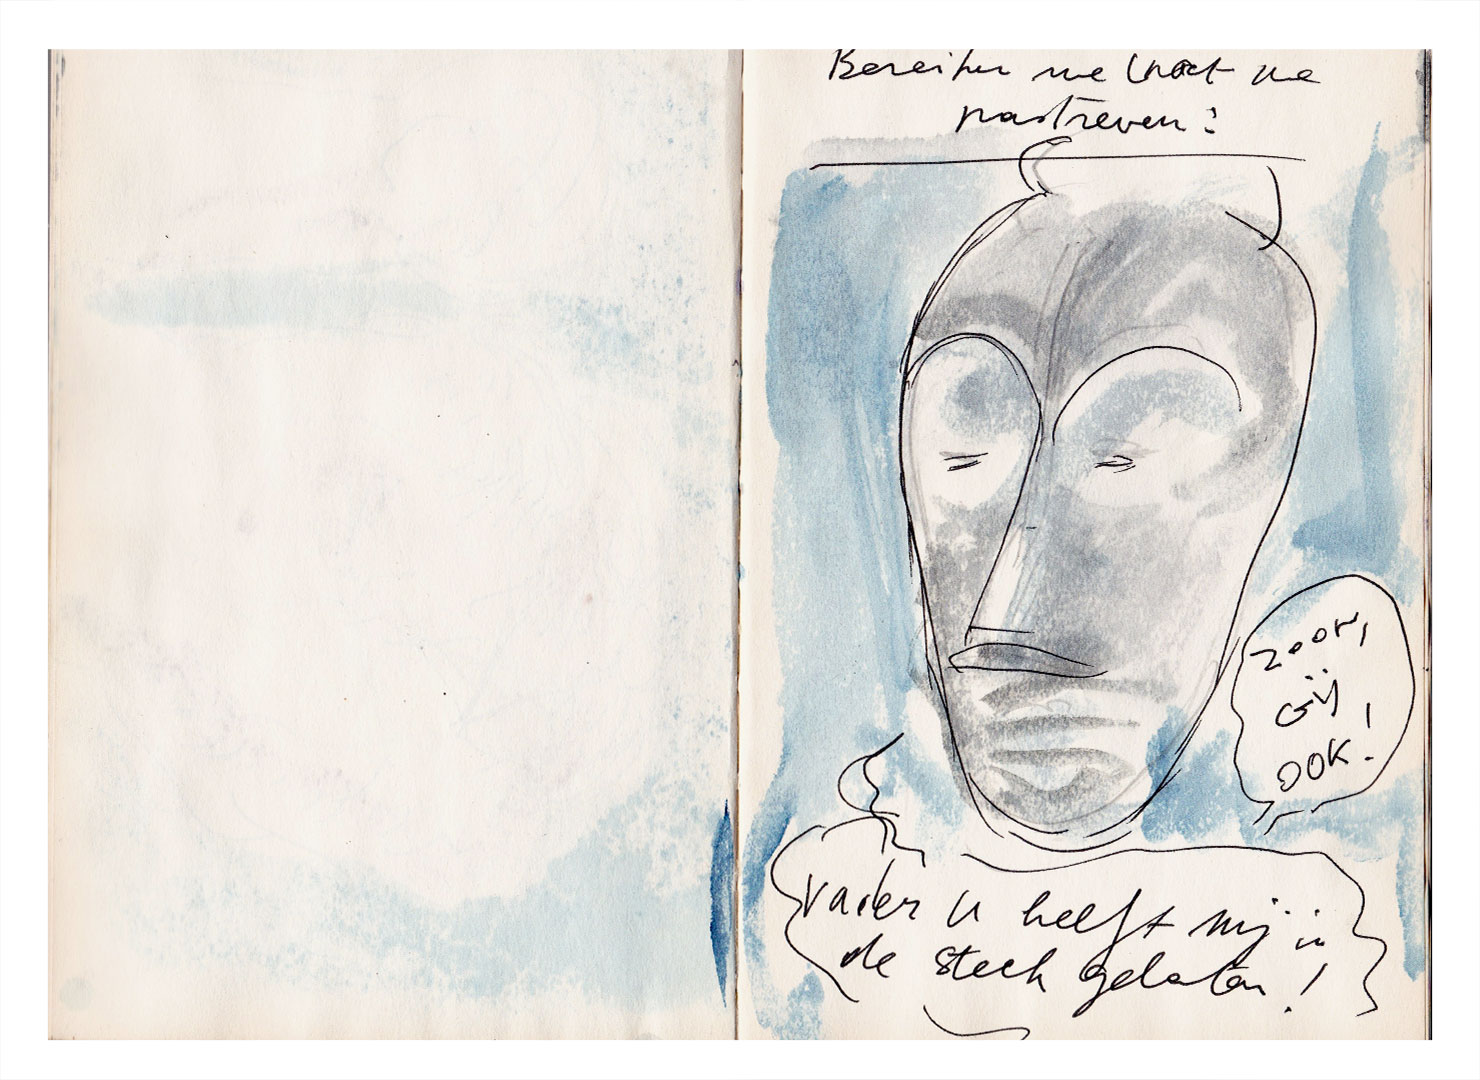 Bereiken we wat we
nastreven?
Zoon,
Gij
OOK!
Vader U heeft mij in
de steek gelaten!